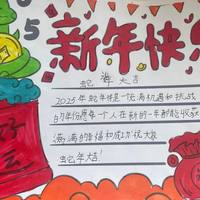 05
新年快
蛇年大吉
2025年蛇年将是一个充满机遇和挑战
的年份愿每一个人在新的一年都能收获
满满的幸福和成功祝大家
蛇年大吉!
好
运